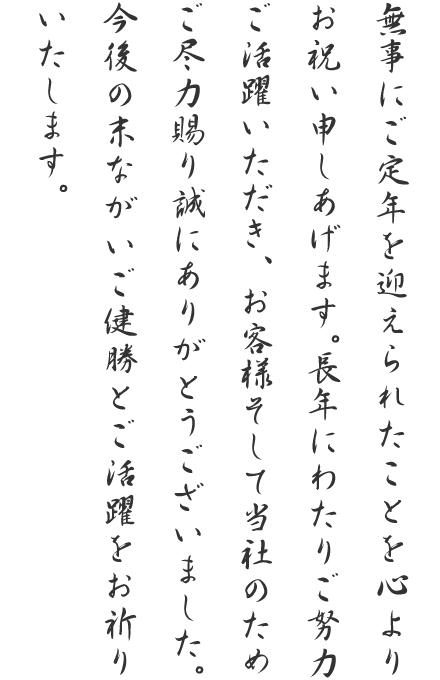 無事にご定年を迎えられたことを心より
お祝い申しあげます。長年にわたりご努力
ご活躍いただき、お客様そして当社のため
ご尽力賜り誠にありがとうございました。
今後の末ながいご健勝とご活躍をお祈り
いたします。